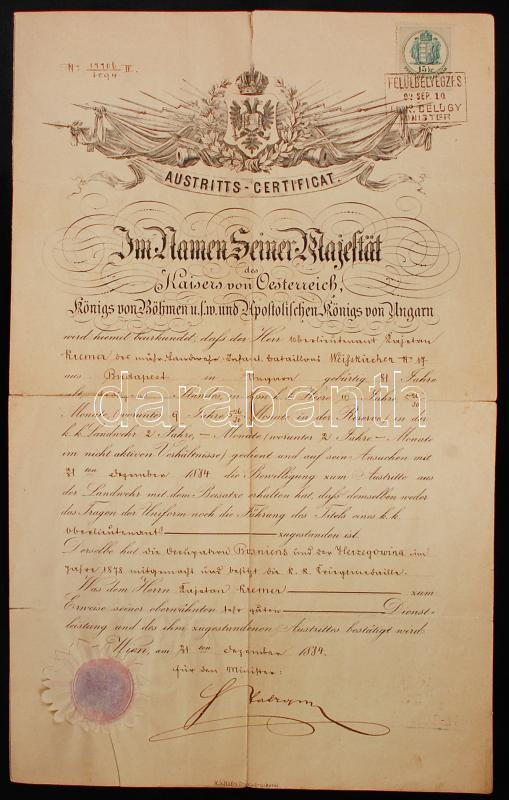 Nr. 19906/1894 II.
15 kr
FELÜLBÉLYEGZI S
SEP. 10
MINISTER
AUSTRITTS-CERTIFICAT.
Im Namen Seiner Majestät
des
Kaisers von Oesterreich,
Königs von Böhmen u.s.w. und Apostolischen Königs von Ungarn
wird hiemit beurkundet, daß der Herr Oberlieutenant Kajetan
Kremer des mähr. Landwehr Infant. Bataillons Weißkirchen Nr. 17
aus Budapest in Ungarn gebürtig 31 Jahre
alt, Standes, in dem k.k. Heere 10 Jahre
Monate (worunter 9 Jahre Monate in der Reserve) in der
k.k. Landwehr 2 Jahre, – Monate (worunter 2 Jahre – Monate
im nicht activen Verhältnisse) gedient und auf sein Ansuchen mit
31ten Dezember 1884 die Bewilligung zum Austritte aus
der Landwehr mit dem Beisatze erhalten hat, daß demselben weder
das Tragen der Uniform noch die Führung des Titels eines k.k.
Oberlieutenants zugestanden ist.
Derselbe hat die Occupation Bosniens und der Herzegowina im
Jahre 1878 mitgemacht und besitzt die k.k. Kriegsmedaille.
Was dem Herrn Kajetan Kremer zum
Erweise seiner oberwähnten sehr guten Dienst-
leistung und des ihm zugestandenen Austrittes bestätigt wird.
Wien, am 31ten Dezember 1884.
Für den Minister:
darabanth